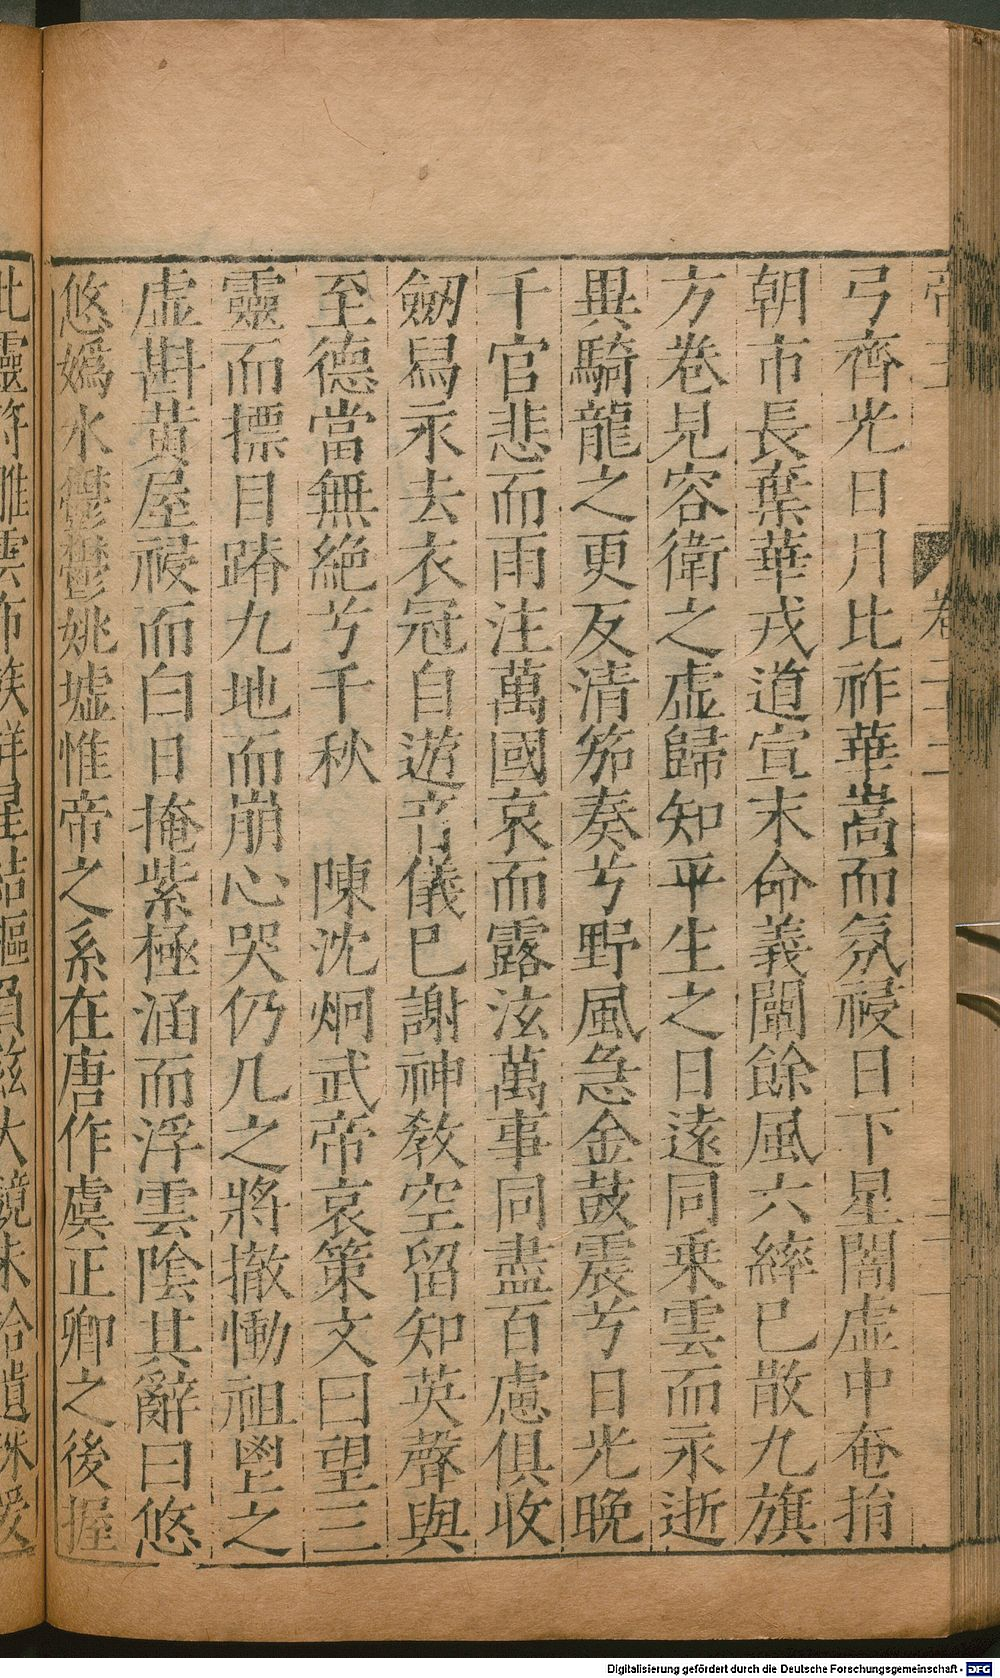 弓齊光日月比祚華嵩而氛祲日下星闇虛中奄捐
朝市長棄華戎道宣末命義闡餘風六綍已散九旗
方卷見容衛之虛歸知平生之日遠同乗雲而永逝
異騎龍之更反清笳奏兮野風急金鼓震兮日光晚
千官悲而雨注萬國哀而露泫萬事同盡百慮俱收
劒舄永去衣冠自遊音儀已謝神教空留知英聲與
至德當無絶兮千秋　陳沈炯武帝哀策文曰望三
靈而摽目蹐九地而崩心哭仍几之將撤慟祖壆之
虛斟黃屋祲而白日掩紫極涵而浮雲陰其辭曰悠
悠嬀水鬱鬱姚墟惟帝之系在唐作虞正卿之後握
此靈符雕雲布族祥星結樞負茲大鏡未拾遺珠爰
卷
Digitalisierung gefördert durch die Deutsche Forschungsgemeinschaft - DFG